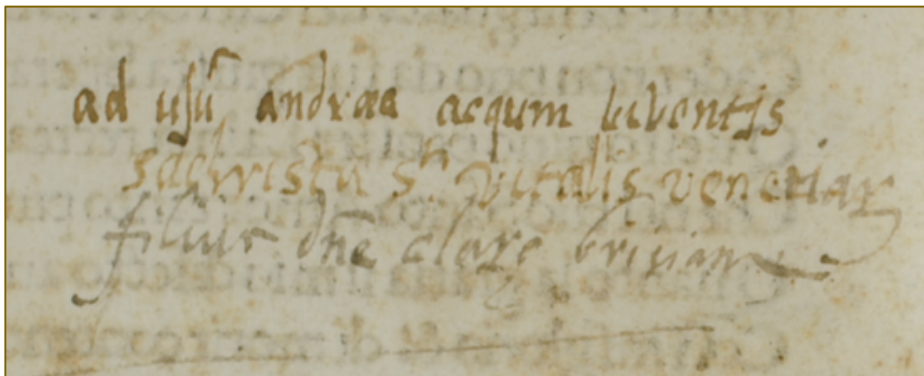 ad usũ andreae aequm bibentis
sachrista Sti vitalis venetiar
filius dñe clare brixian